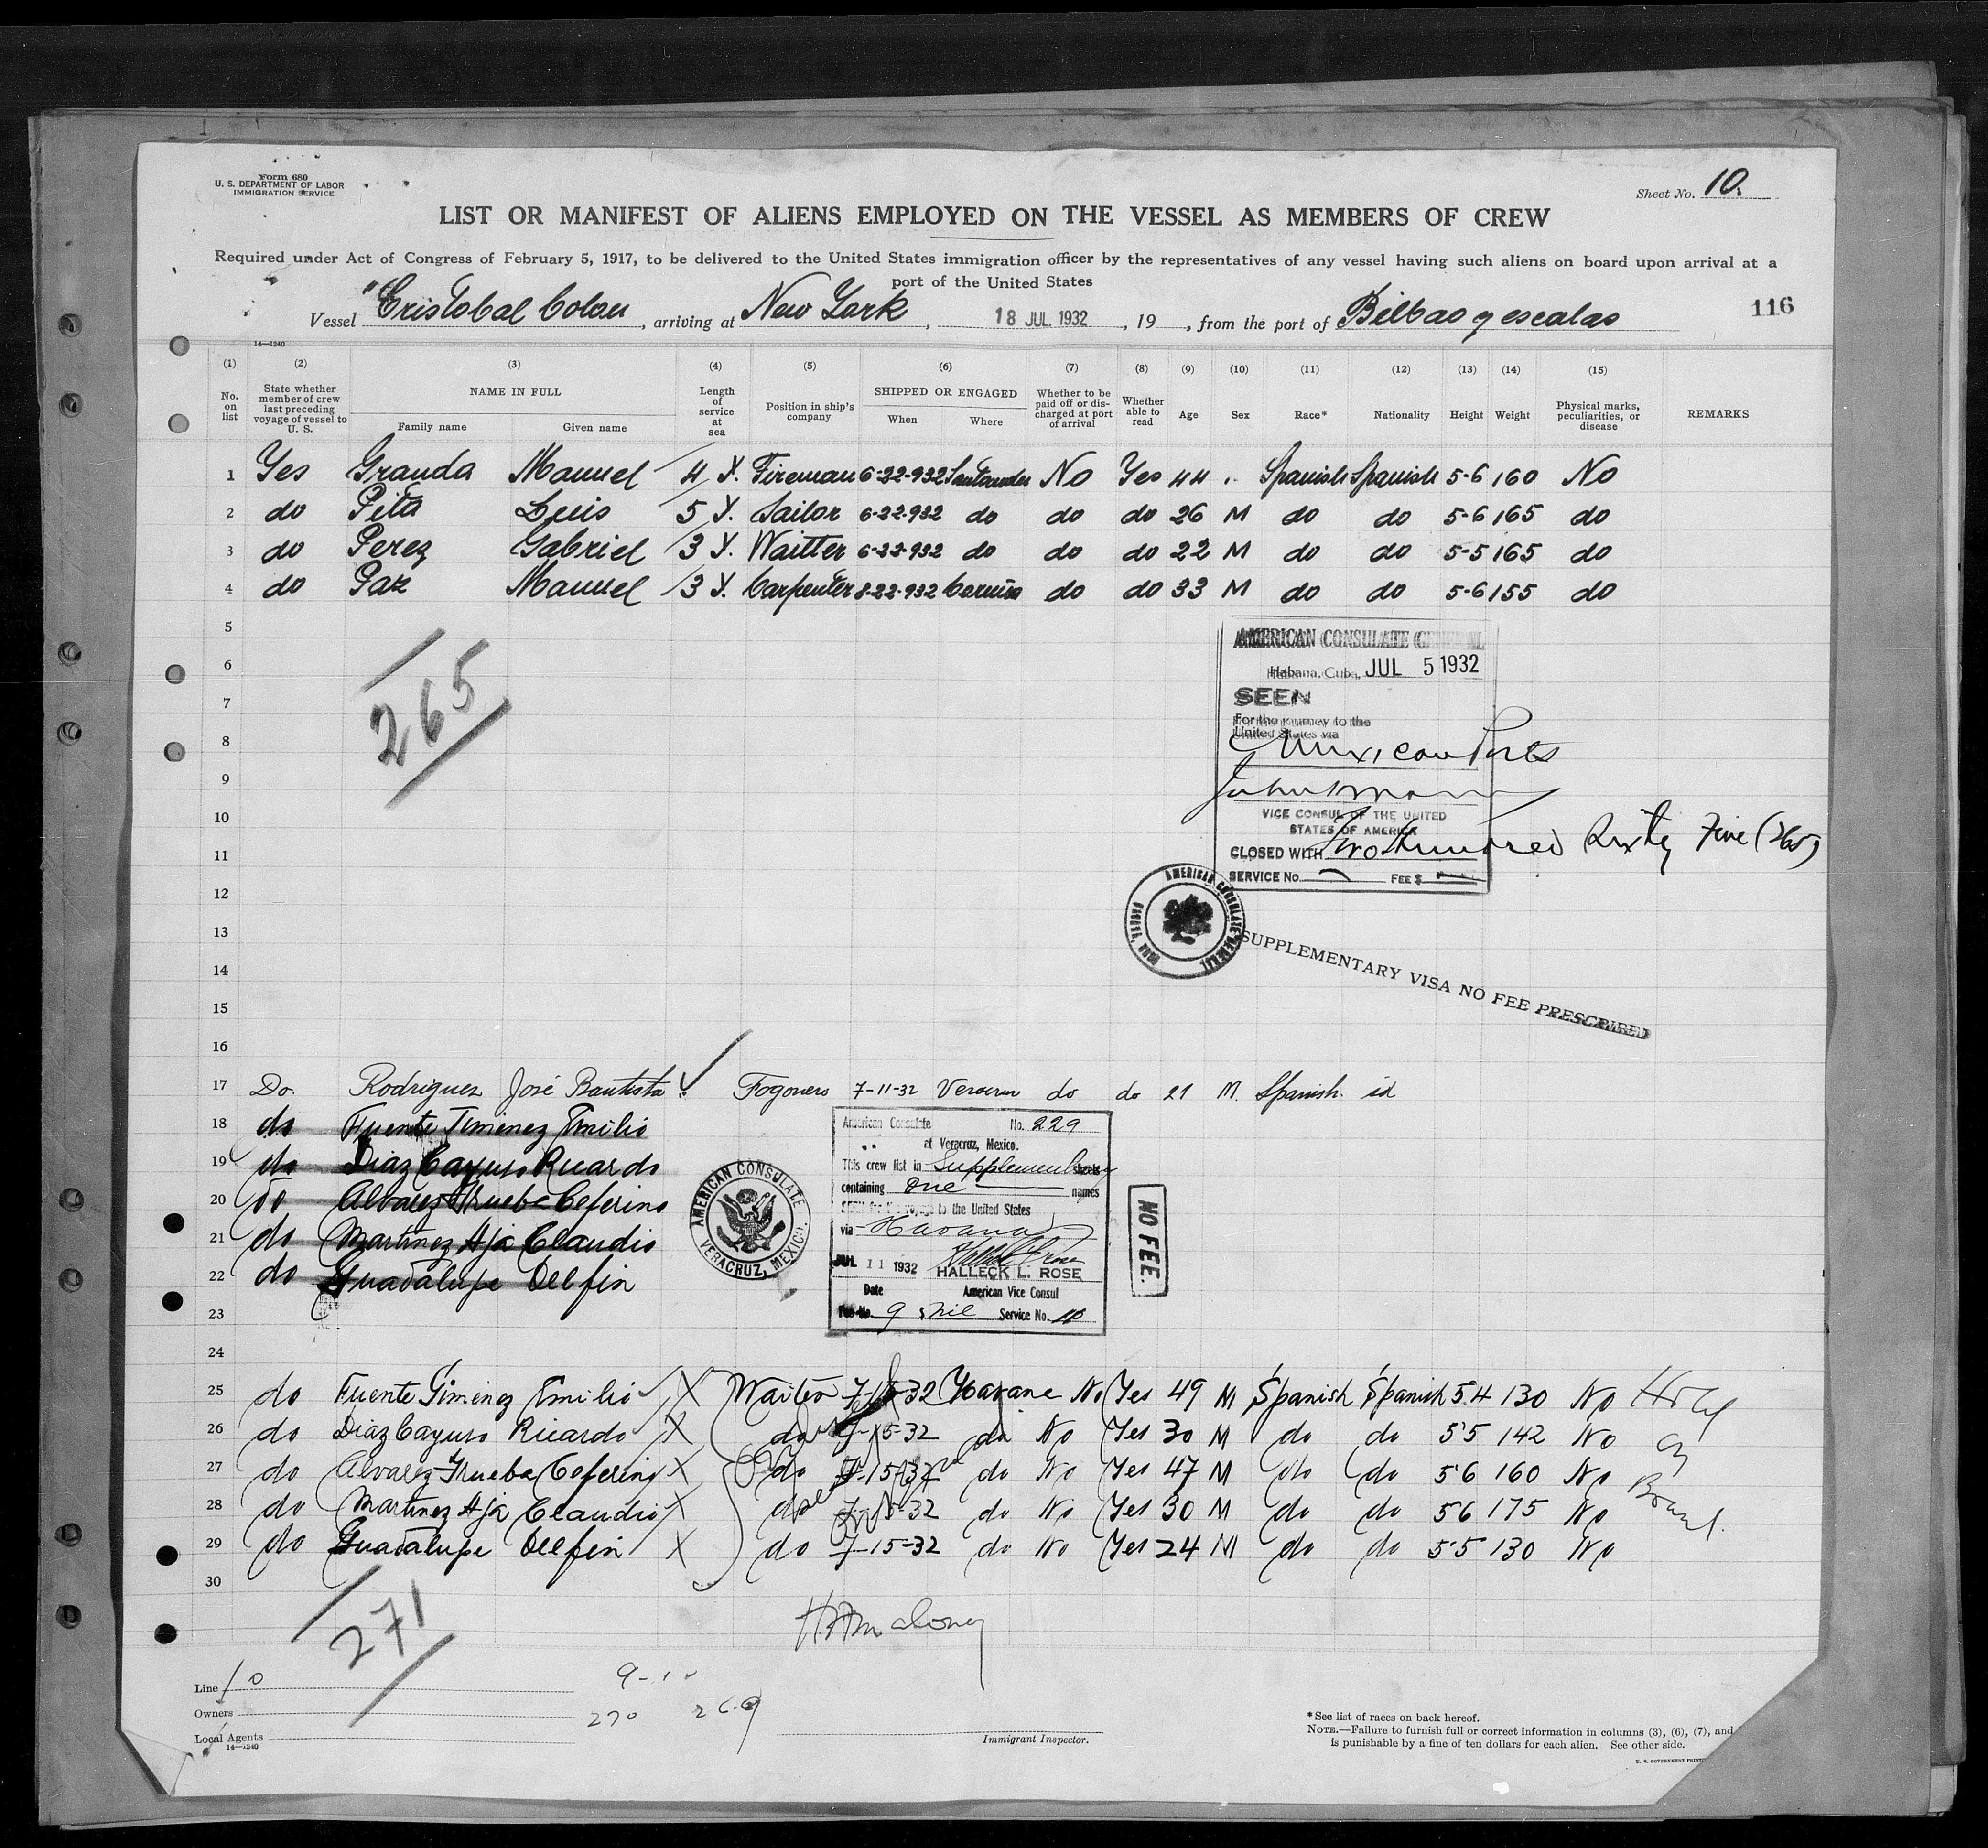 Form 680
U. S. DEPARTMENT OF LABOR
IMMIGRATION SERVICE
Sheet No. 10.
LIST OR MANIFEST OF ALIENS EMPLOYED ON THE VESSEL AS MEMBERS OF CREW
Required under Act of Congress of February 5, 1917, to be delivered to the United States immigration officer by the representatives of any vessel having such aliens on board upon arrival at a
port of the United States
Vessel "Cristobal Colon, arriving at New York, 18 JUL 1932, 19 , from the port of Bilbao y escalas
116
14—1240
(1) (2) (3) (4) (5) (6) (7) (8) (9) (10) (11) (12) (13) (14) (15)
No. on list State whether member of crew last preceding voyage of vessel to U. S. NAME IN FULL Family name Given name Length of service at sea Position in ship's company SHIPPED OR ENGAGED When Where Whether to be paid off or discharged at port of arrival Whether able to read Age Sex Race* Nationality Height Weight Physical marks, peculiarities, or disease REMARKS
1 Yes Granda Manuel 4 Y. Fireman 6-22-932 Santander No Yes 44 Spanish Spanish 5-6 160 No
2 do Pita Luis 5 Y. Sailor 6-22-932 do do do 26 M do do 5-6 165 do
3 do Perez Gabriel 3 Y. Waitter 6-22-932 do do do 22 M do do 5-5 165 do
4 do Paz Manuel 3 Y. Carpenter 8-22-932 Coruña do do 33 M do do 5-6 155 do
5
6
7
8
9
10
11
12
13
14
15
16
265
AMERICAN CONSULATE GENERAL
Habana, Cuba, JUL 5 1932
SEEN
For the journey to the
United States via
Mexican Ports
VICE CONSUL OF THE UNITED
STATES OF AMERICA
CLOSED WITH Two Hundred Sixty Five (265)
SERVICE No. FEE $
AMERICAN CONSULATE GENERAL
SUPPLEMENTARY VISA NO FEE PRESCRIBED
17 Do. Rodriguez José Bautista Fogonero 7-11-32 Veracruz do do 21 M. Spanish id
18 do Fuente Jimenez Emilio
19 do Diaz Cayuso Ricardo
20 do Alvarez Trueba Ceferino
21 do Martinez Aja Claudio
22 do Guadalupe Delfin
23
24
American Consulate No. 229
at Veracruz, Mexico.
This crew list in Supplementary sheets
containing One names
SEEN for the voyage to the United States
via Havana
JUL 11 1932 HALLECK L. ROSE
Date American Vice Consul
Fee No. 9 $ nil Service No. 10
AMERICAN CONSULATE
VERACRUZ, MEXICO.
NO FEE.
25 do Fuente Giminez Emilio X Waiter 7-15-32 Havane No Yes 49 M Spanish Spanish 5 4 130 No
26 do Diaz Cayuso Ricardo X do 7-15-32 do No Yes 30 M do do 5 5 142 No
27 do Alvarez Trueba Ceferino X do 7-15-32 do No Yes 47 M do do 5 6 160 No
28 do Martinez Aja Claudio X do 7-15-32 do No Yes 30 M do do 5 6 175 No
29 do Guadalupe Delfin X do 7-15-32 do No Yes 24 M do do 5 5 130 No
30
271
Line 10
Owners
Local Agents
14—1240
270 269
Immigrant Inspector.
*See list of races on back hereof.
NOTE.—Failure to furnish full or correct information in columns (3), (6), (7), and
is punishable by a fine of ten dollars for each alien. See other side.
U. S. GOVERNMENT